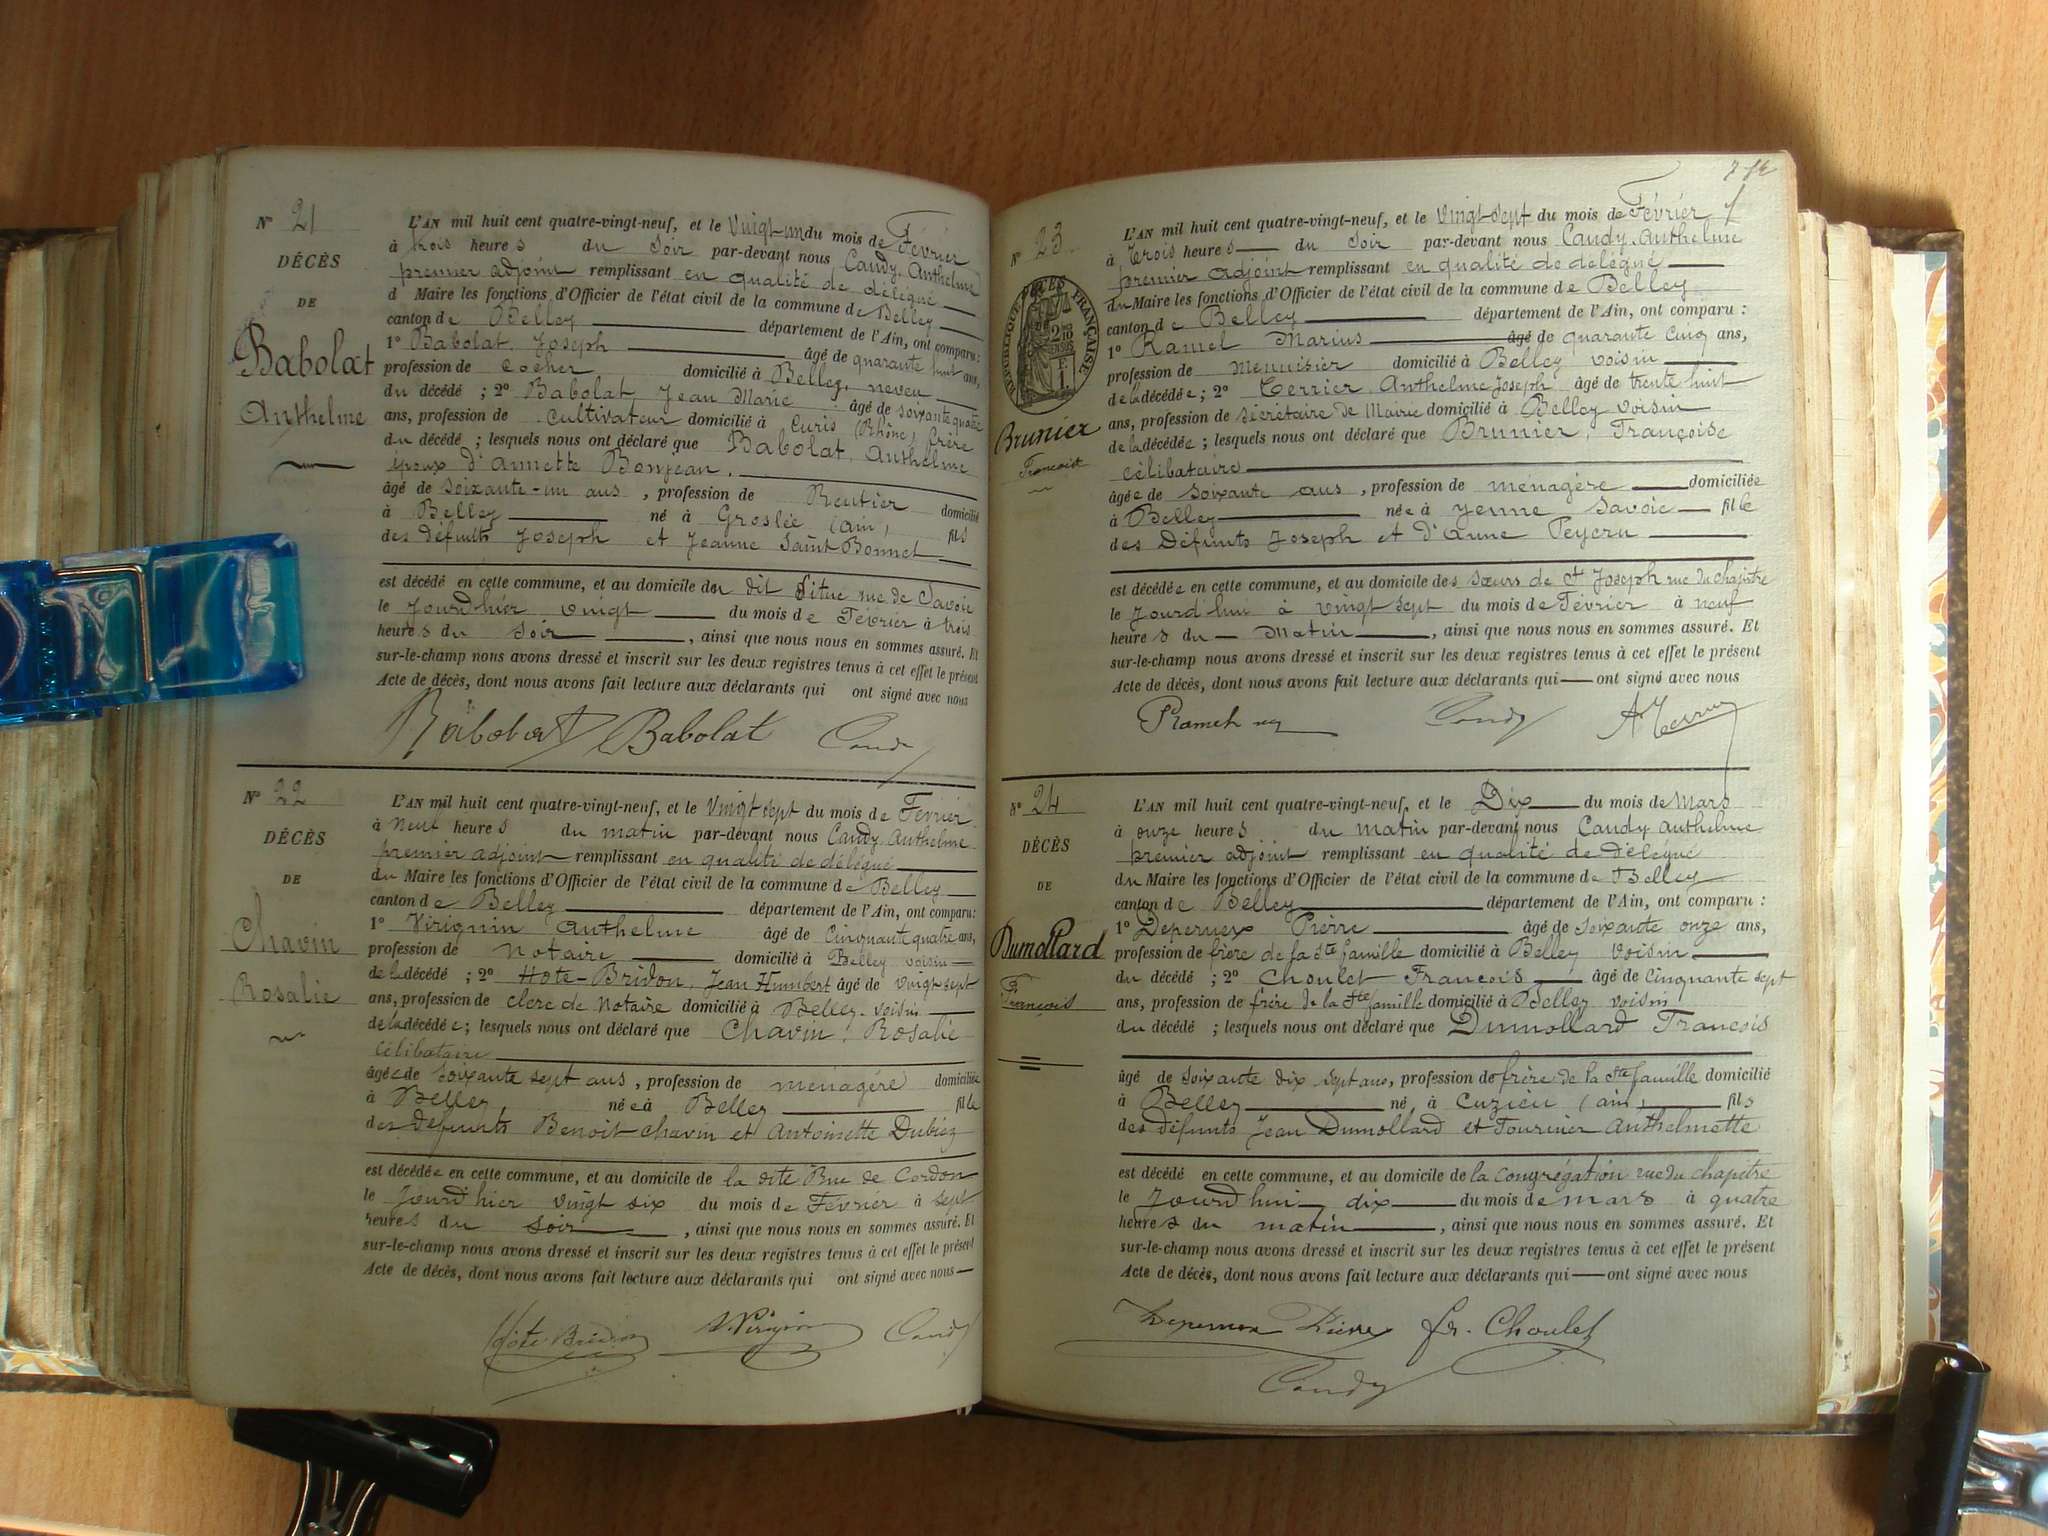 N° 21
DÉCÈS
DE
Babolat
Anthelme
L'AN mil huit cent quatre-vingt-neuf, et le Vingt un du mois de Février
à trois heures du Soir par-devant nous Candy, Anthelme
premier adjoint remplissant en qualité de délégué
d Maire les fonctions d'Officier de l'état civil de la commune de Belley
canton de Belley département de l'Ain, ont comparu :
1° Babolat, Joseph âgé de quarante huit ans,
profession de Cocher domicilié à Belley, neveu
du décédé ; 2° Babolat, Jean Marie âgé de soixante quatre
ans, profession de Cultivateur domicilié à Curis (Rhône) frère
du décédé ; lesquels nous ont déclaré que Babolat, Anthelme
époux d'Annette Bonjean,
âgé de soixante-un ans, profession de Rentier domicilié
à Belley né à Groslée (ain) fils
des défunts Joseph et Jeanne Saint Bonnet
est décédé en cette commune, et au domicile du dit Situé rue de Savoie
le Jourd'hier vingt du mois de Février à trois
heures du Soir, ainsi que nous nous en sommes assuré. Et
sur-le-champ nous avons dressé et inscrit sur les deux registres tenus à cet effet le présent
Acte de décès, dont nous avons fait lecture aux déclarants qui ont signé avec nous
Babolat Babolat Candy
N° 22
DÉCÈS
DE
Chavin
Rosalie
L'AN mil huit cent quatre-vingt-neuf, et le Vingt sept du mois de Février
à Neuf heures du matin par-devant nous Candy Anthelme
premier adjoint remplissant en qualité de délégué
du Maire les fonctions d'Officier de l'état civil de la commune de Belley
canton de Belley département de l'Ain, ont comparu :
1° Virignin Anthelme âgé de Cinquante quatre ans,
profession de notaire domicilié à Belley voisin
de la décédé ; 2° Hote-Bridon, Jean Humbert âgé de vingt sept
ans, profession de clerc de Notaire domicilié à Belley voisin
de la décédée ; lesquels nous ont déclaré que Chavin, Rosalie
célibataire
âgée de Soixante sept ans, profession de ménagère domiciliée
à Belley née à Belley fille
des défunts Benoit Chavin et Antoinette Dubiez
est décédée en cette commune, et au domicile de la dite Rue de Cordon
le Jourd'hier vingt six du mois de Février à sept
heures du Soir, ainsi que nous nous en sommes assuré. Et
sur-le-champ nous avons dressé et inscrit sur les deux registres tenus à cet effet le présent
Acte de décès, dont nous avons fait lecture aux déclarants qui ont signé avec nous
Hote Bridon A Virignin Candy
N° 23
RÉPUBLIQUE FRANÇAISE
Brunier
Françoise
L'AN mil huit cent quatre-vingt-neuf, et le Vingt sept du mois de Février
à Trois heures du Soir par-devant nous Candy Anthelme
premier adjoint remplissant en qualité de délégué
du Maire les fonctions d'Officier de l'état civil de la commune de Belley
canton de Belley département de l'Ain, ont comparu :
1° Ramel Marius âgé de quarante cinq ans,
profession de Menuisier domicilié à Belley voisin
de la décédée ; 2° Terrier, Anthelme Joseph âgé de trente huit
ans, profession de Secrétaire de Mairie domicilié à Belley voisin
de la décédée ; lesquels nous ont déclaré que Brunier, Françoise
célibataire
âgée de Soixante ans, profession de ménagère domiciliée
à Belley née à Yenne Savoie fille
des Défunts Joseph et d'Anne Peycru
est décédée en cette commune, et au domicile des Sœurs de St Joseph rue du chapitre
le Jourd'hui à vingt sept du mois de Février à neuf
heures du Matin, ainsi que nous nous en sommes assuré. Et
sur-le-champ nous avons dressé et inscrit sur les deux registres tenus à cet effet le présent
Acte de décès, dont nous avons fait lecture aux déclarants qui ont signé avec nous
Candy A Terrier
N° 24
DÉCÈS
DE
Dumollard
François
L'AN mil huit cent quatre-vingt-neuf, et le Dix du mois de Mars
à onze heures du matin par-devant nous Candy Anthelme
premier adjoint remplissant en qualité de délégué
du Maire les fonctions d'Officier de l'état civil de la commune de Belley
canton de Belley département de l'Ain, ont comparu :
1° Depernex Pierre âgé de Soixante onze ans,
profession de frère de la Ste famille domicilié à Belley voisin
du décédé ; 2° Choulet François âgé de Cinquante sept
ans, profession de frère de la Ste famille domicilié à Belley voisin
du décédé ; lesquels nous ont déclaré que Dumollard François
âgé de Soixante dix sept ans, profession de frère de la Ste famille domicilié
à Belley né à Cuzieu (ain) fils
des défunts Jean Dumollard et Fournier Anthelmette
est décédé en cette commune, et au domicile de la Congrégation rue du chapitre
le Jourd'hui dix du mois de mars à quatre
heures du matin, ainsi que nous nous en sommes assuré. Et
sur-le-champ nous avons dressé et inscrit sur les deux registres tenus à cet effet le présent
Acte de décès, dont nous avons fait lecture aux déclarants qui ont signé avec nous
Depernex Pierre fr. Choulet
Candy